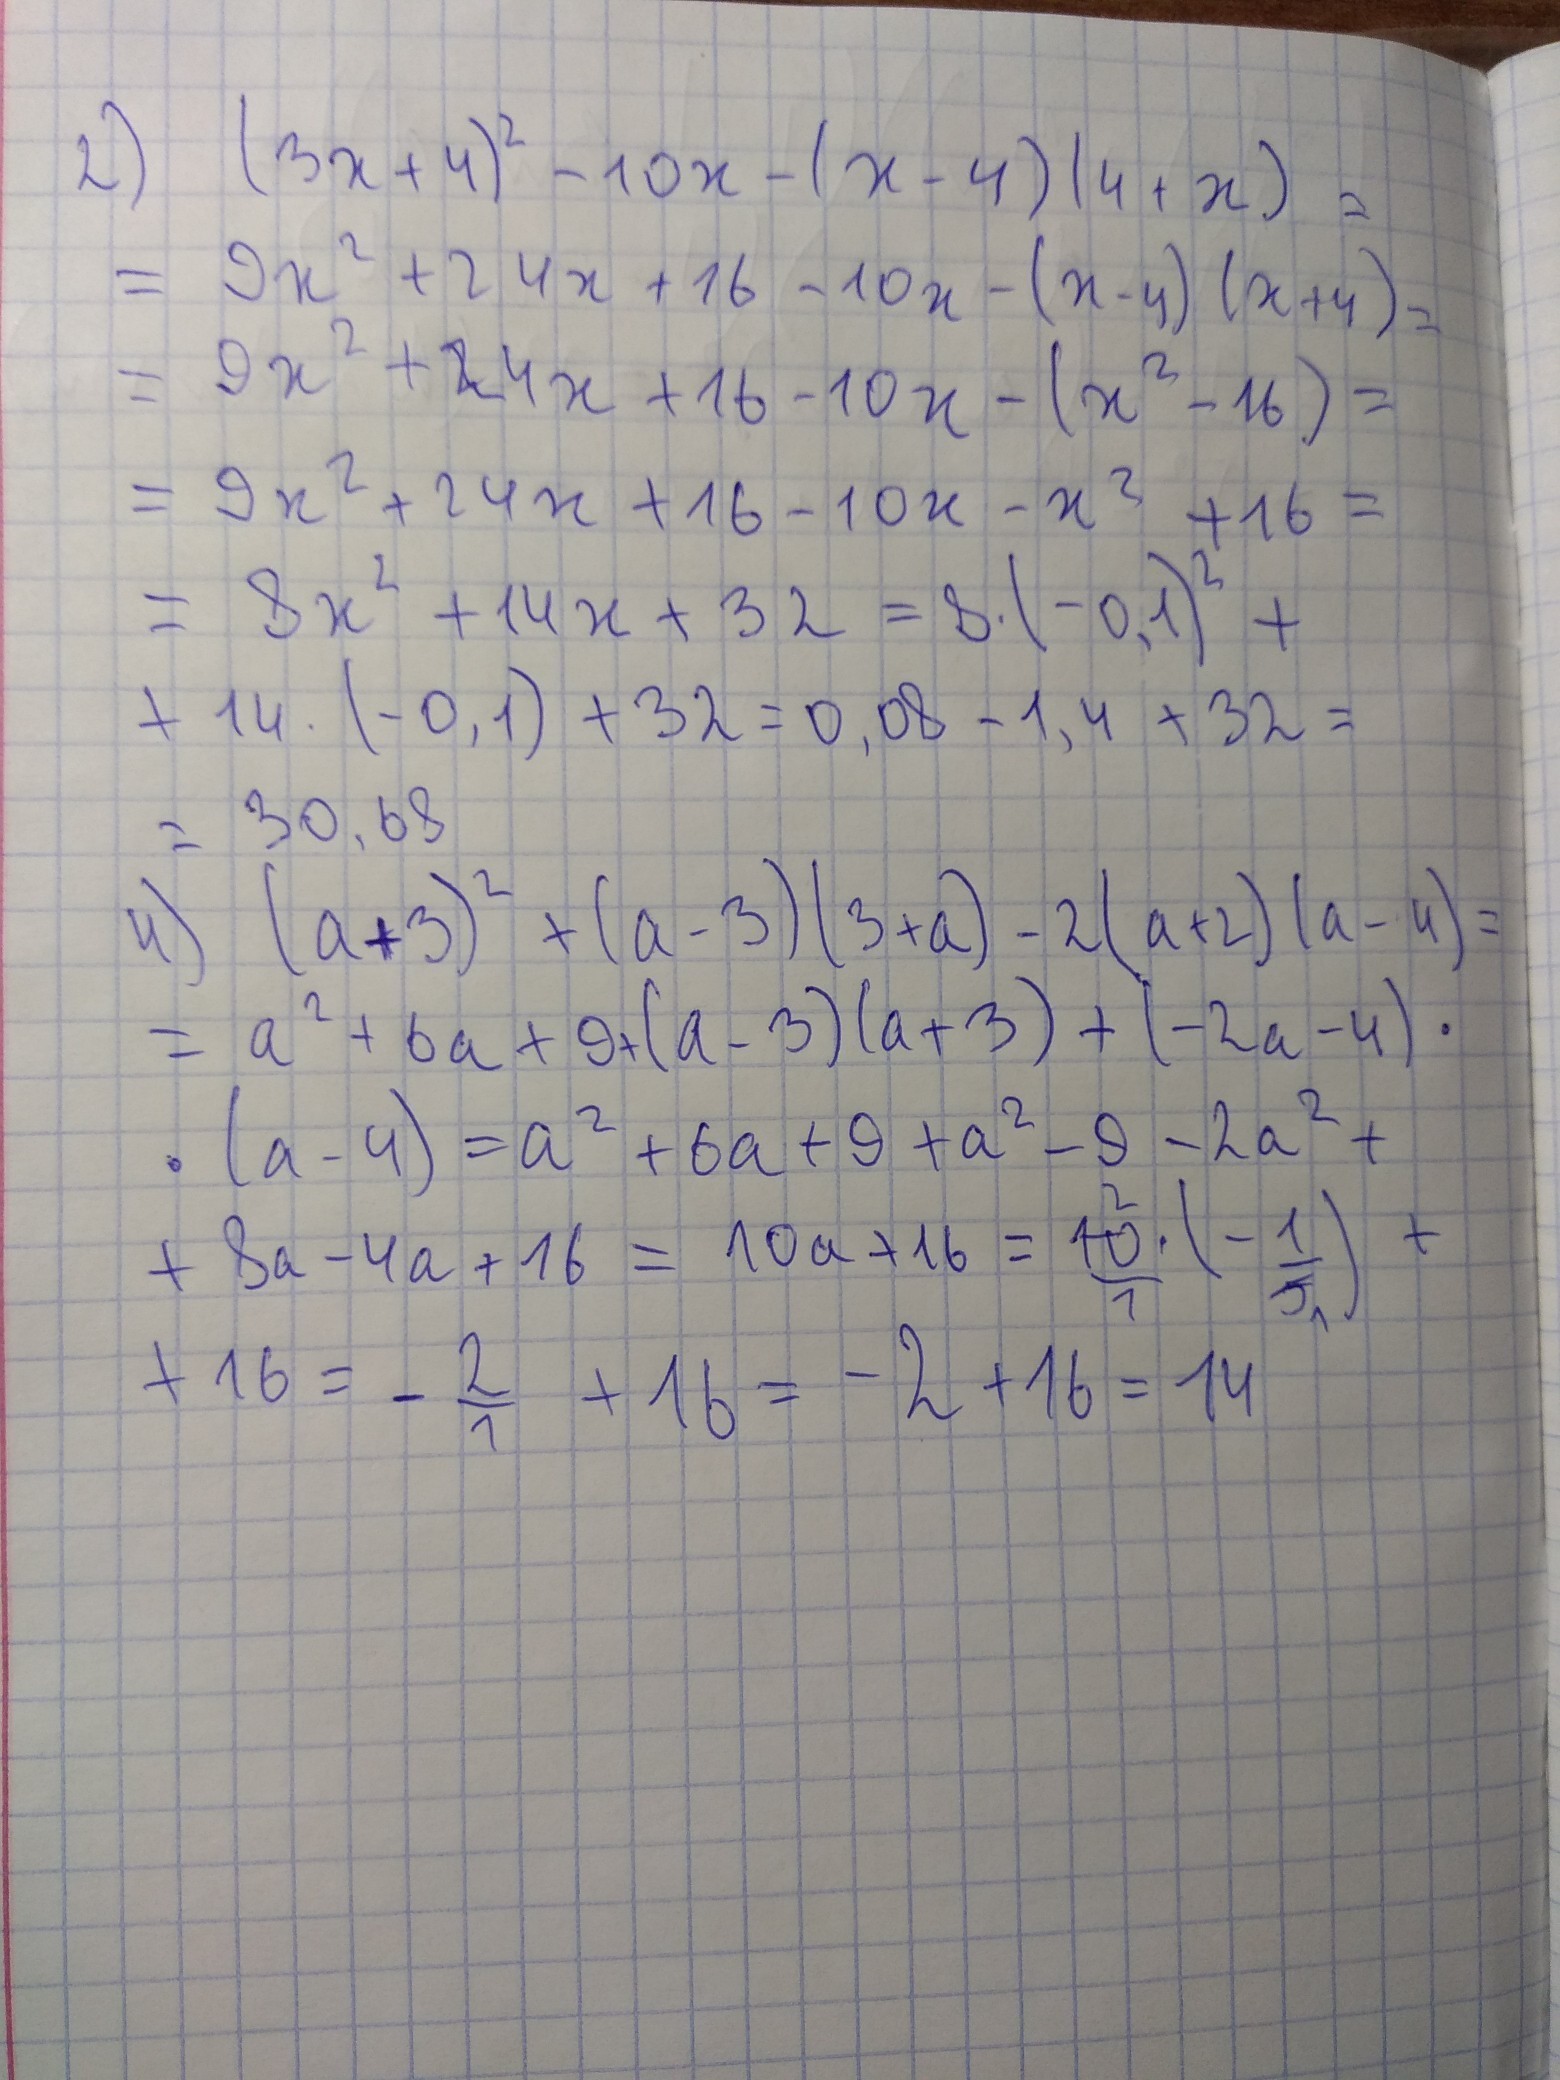 2) (3x+4)² - 10x - (x - 4)(4 + x) =
= 9x² + 24x + 16 - 10x - (x-4)(x+4) =
= 9x² + 24x + 16 - 10x - (x² - 16) =
= 9x² + 24x + 16 - 10x - x² + 16 =
= 8x² + 14x + 32 = 8·(-0,1)² +
+ 14·(-0,1) + 32 = 0,08 - 1,4 + 32 =
= 30,68
4) (a+3)² + (a - 3)(3+a) - 2(a+2)(a - 4) =
= a² + 6a + 9 + (a - 3)(a+3) + (-2a - 4)·
·(a - 4) = a² + 6a + 9 + a² - 9 - 2a² +
+ 8a - 4a + 16 = 10a + 16 = 10²/1·(-1/5₁) +
+ 16 = - 2/1 + 16 = -2 + 16 = 14